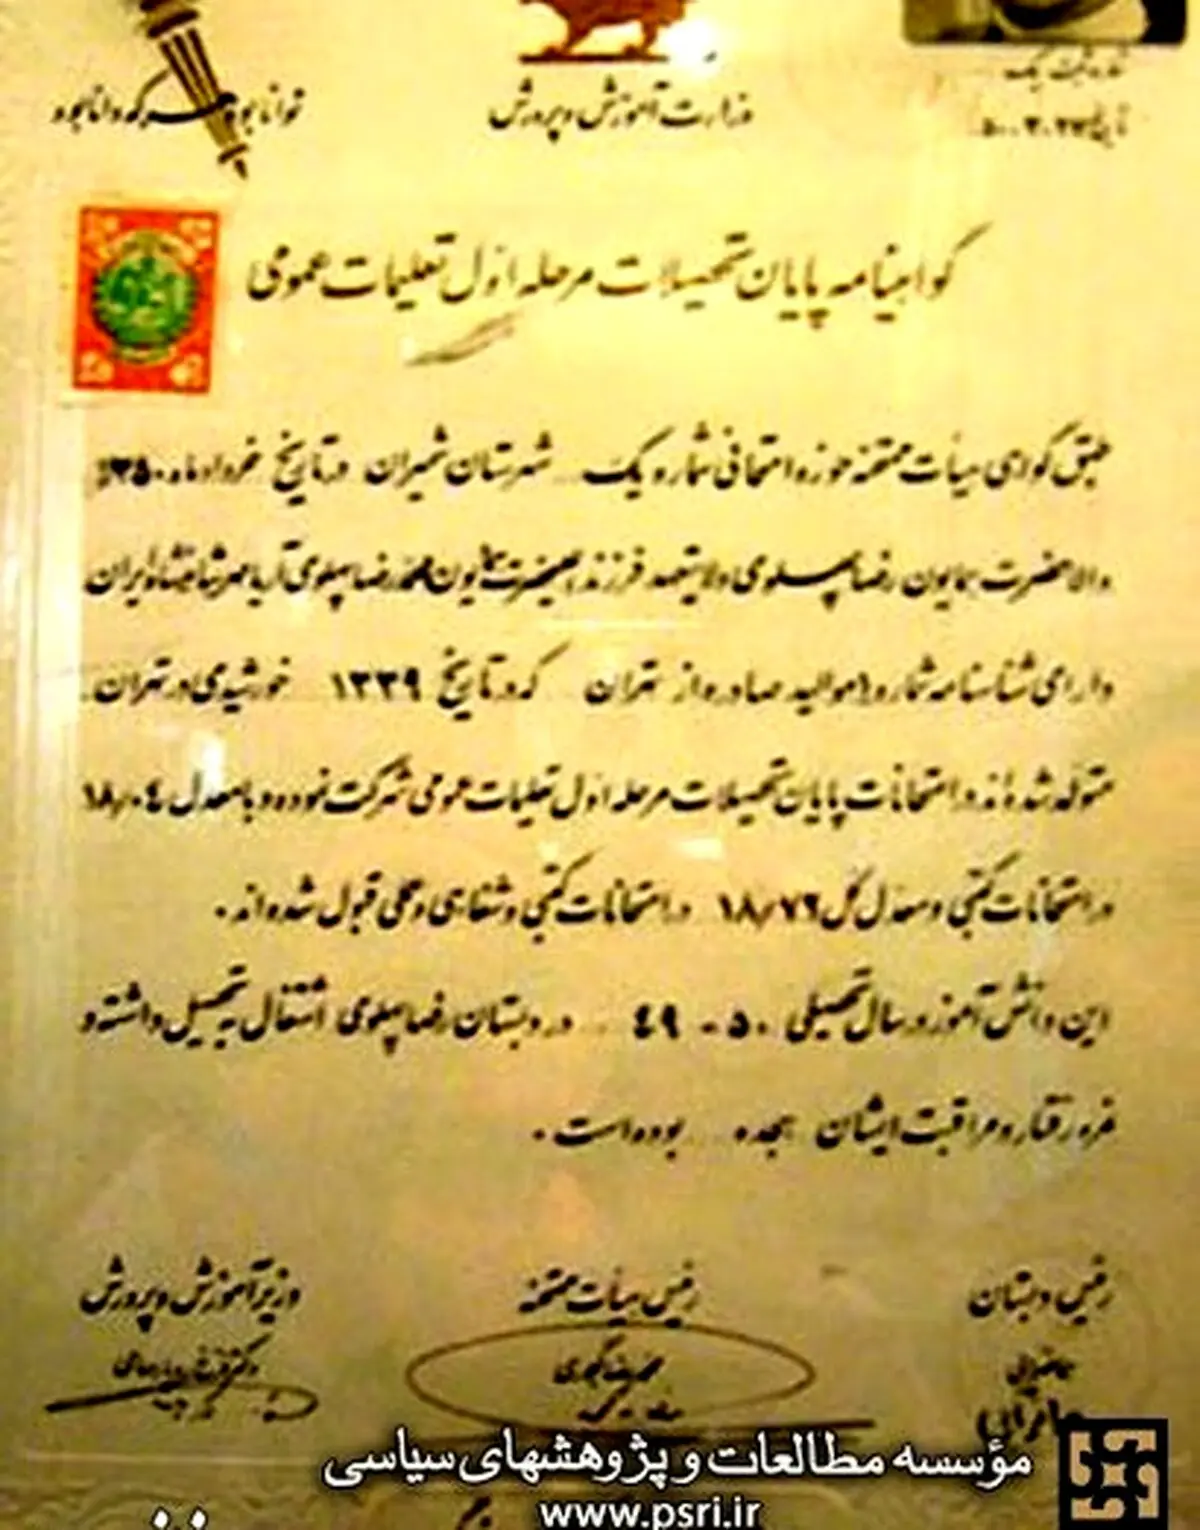 شماره ثبت یک
تاریخ ۵۰.۳.۲۷
وزارت آموزش و پرورش
توانا بود هر که دانا بود
گواهینامه پایان تحصیلات مرحله اول تعلیمات عمومی
طبق گواهی هیأت ممتحنه حوزه امتحانی شماره یک شهرستان شمیران در تاریخ خرداد ماه ۱۳۵۰
والاحضرت همایون رضا پهلوی ولایتعهد فرزند اعلیحضرت همایون محمدرضا پهلوی آریامهر شاهنشاه ایران
دارای شناسنامه شماره موالید صادره از تهران که در تاریخ ۱۳۳۹ خورشیدی در تهران
متولد شده‌اند در امتحانات پایان تحصیلات مرحله اول تعلیمات عمومی شرکت نموده و با معدل ۱۸/۰۴
در امتحانات کتبی و معدل کل ۱۸/۷۶ در امتحانات کتبی و شفاهی و عملی قبول شده‌اند.
این دانش آموز در سال تحصیلی ۵۰ - ۴۹ در دبستان رضا پهلوی اشتغال به تحصیل داشته و
نمره رفتار و مراقبت ایشان هجده بوده است.
رئیس دبستان
رئیس هیأت ممتحنه
وزیر آموزش و پرورش
مؤسسه مطالعات و پژوهشهای سیاسی
www.psri.ir